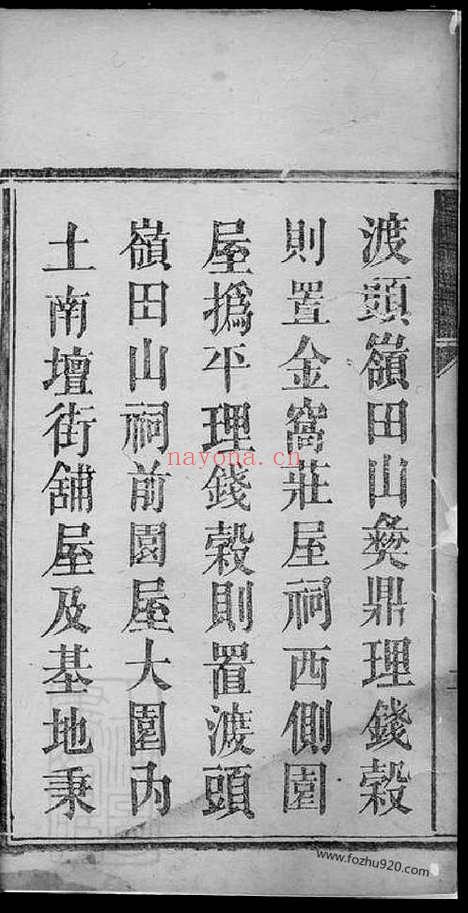 渡頭嶺田山彜鼎理錢榖
則置金窩莊屋祠西側園
屋撝平理錢榖則置渡頭
嶺田山祠前園屋大園内
土南壇街舖屋及基地秉
nayona.cn
www.fozhu920.com